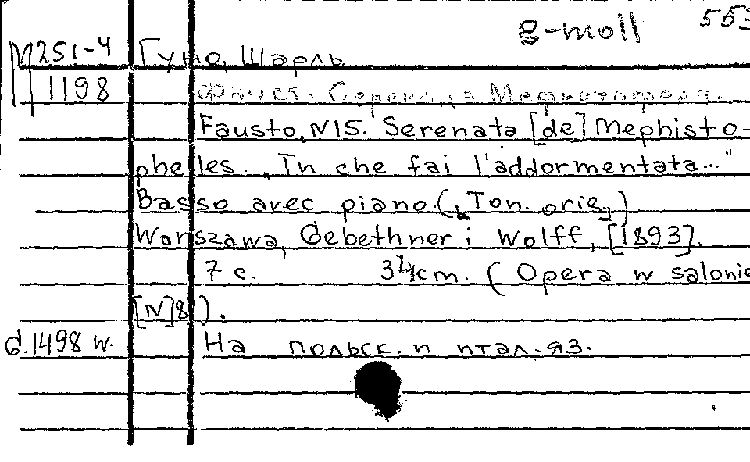 g-moll 553
М251-4 Гуно, Шарль
1198 Фауст. Серенада Мефистофеля.
Fausto, N15. Serenata [de] Mephisto-
phelles. „Tn che fai l'addormentata..."
Basso avec piano. („Ton. orig.")
Warszawa, Gebethner i Wolff, [1893].
7 с. 34cm. (Opera w salonie
[N]8).
G.1498 w. На польск. и итал. яз.